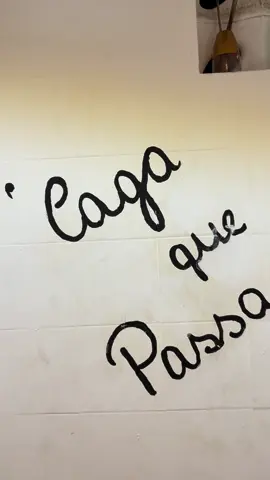 "Caga
que
Passa